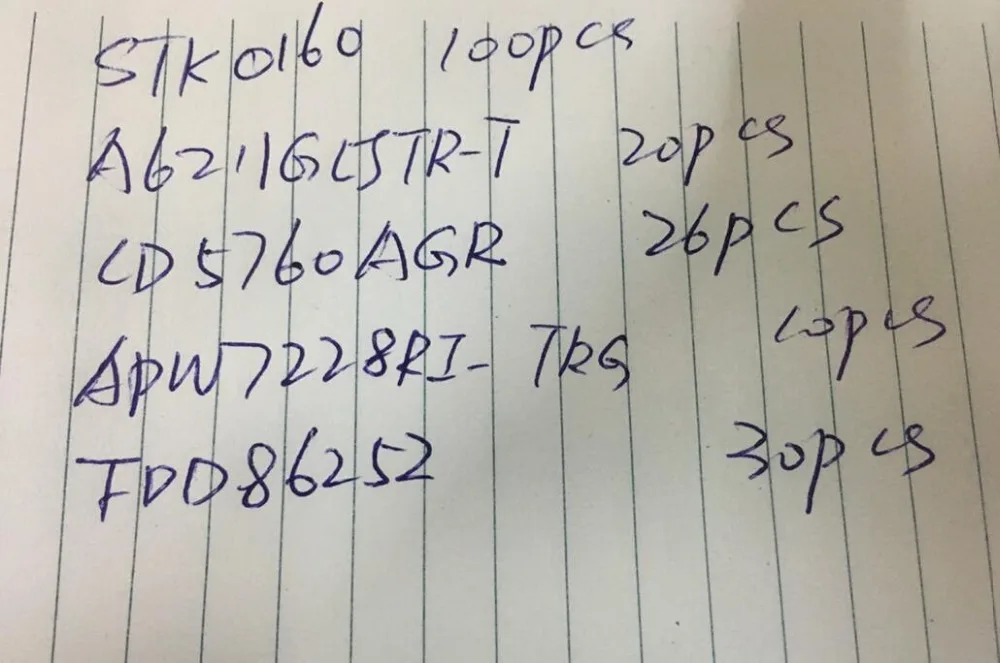 STK0160 100pcs
A6211GLJTR-T 20pcs
LD5760AGR 26pcs
APW7228RI-TRG 10pcs
FDD86252 30pcs